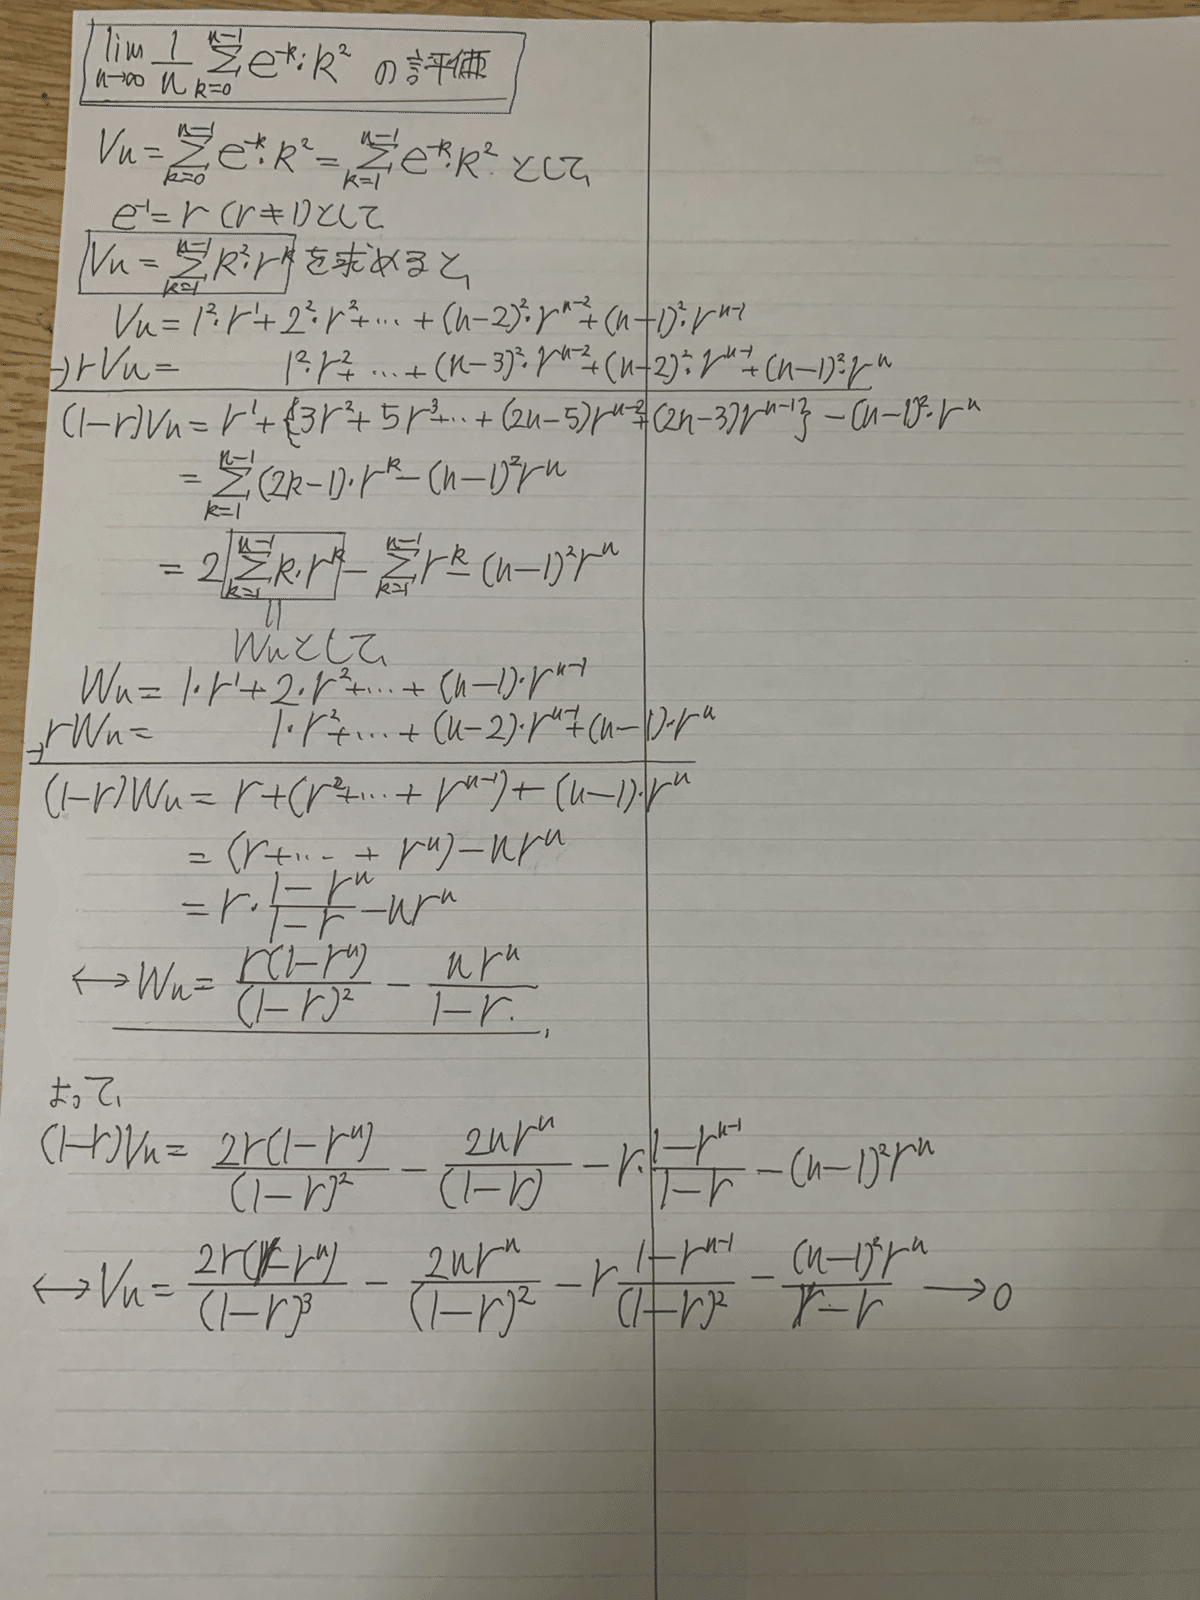 lim_{n→∞} 1/n Σ_{k=0}^{n-1} e^{-k}・k² の評価
Vn = Σ_{k=0}^{n-1} e^{-k}・k² = Σ_{k=1}^{n-1} e^{-k}・k² として、
e^{-1} = r (r≠1)として
Vn = Σ_{k=1}^{n-1} k²・r^k を求めると、
Vn = 1²・r¹ + 2²・r² + … + (n-2)²・r^{n-2} + (n-1)²・r^{n-1}
-) rVn = 1²・r² + … + (n-3)²・r^{n-2} + (n-2)²・r^{n-1} + (n-1)²・r^n
(1-r)Vn = r¹ + {3r² + 5r³ + … + (2n-5)r^{n-2} + (2n-3)r^{n-1}} - (n-1)²・r^n
= Σ_{k=1}^{n-1} (2k-1)・r^k - (n-1)²r^n
= 2 Σ_{k=1}^{n-1} k・r^k - Σ_{k=1}^{n-1} r^k - (n-1)²r^n
||
Wnとして、
Wn = 1・r¹ + 2・r² + … + (n-1)・r^{n-1}
-) rWn = 1・r² + … + (n-2)・r^{n-1} + (n-1)・r^n
(1-r)Wn = r + (r² + … + r^{n-1}) + (n-1)・r^n
= (r + … + r^n) - nr^n
= r・(1-r^n)/(1-r) - nr^n
↔ Wn = r(1-r^n)/(1-r)² - nr^n/(1-r).
よって、
(1-r)Vn = 2r(1-r^n)/(1-r)² - 2nr^n/(1-r) - r・(1-r^{n-1})/(1-r) - (n-1)²r^n
↔ Vn = 2r(1-r^n)/(1-r)³ - 2nr^n/(1-r)² - r(1-r^{n-1})/(1-r)² - (n-1)²r^n/(1-r) → 0